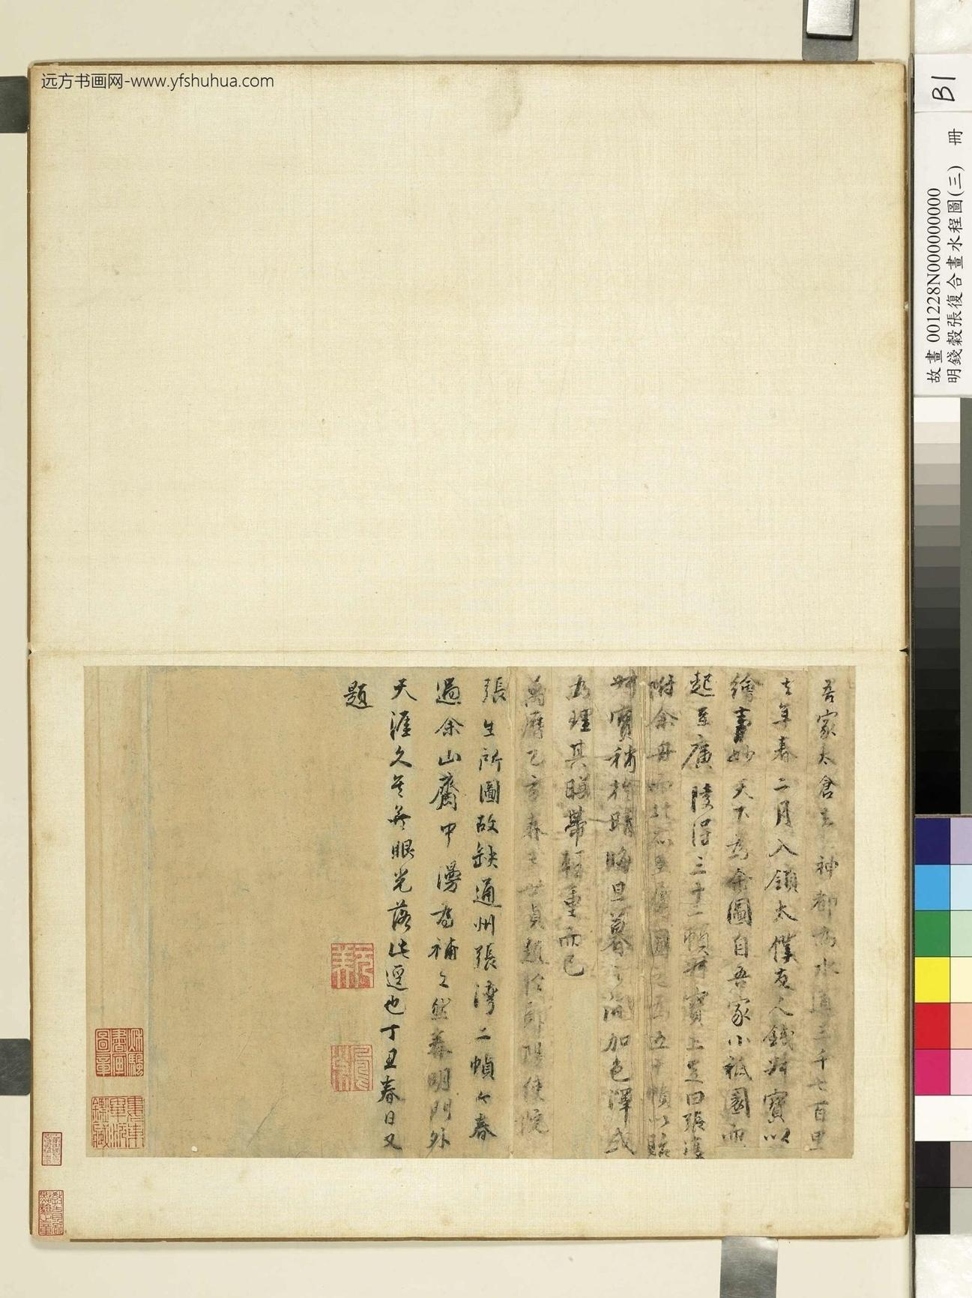 远方书画网-www.yfshuhua.com
B1
故畫 001228N000000000
明錢穀張復合畫水程圖(三) 冊
吾家太倉去神都為水道三千七百里
去年春二月入領太僕友人錢叔寶以
繪事妙天下為余圖自吾家小祗園而
起至廣陵得三十二幀叔寶上足曰張復
附余舟而北所至屬圖之為五十幀以貽
叔寶稍於晴晦旦暮之間加色澤或
為理其映帶輕重而已
萬曆乙亥春王世貞題於鄖陽使院
張生所圖故缺通州張灣二幀今春
過余山齋中漫為補之然春明門外
天涯久矣無眼光落此選也丁丑春日又
題